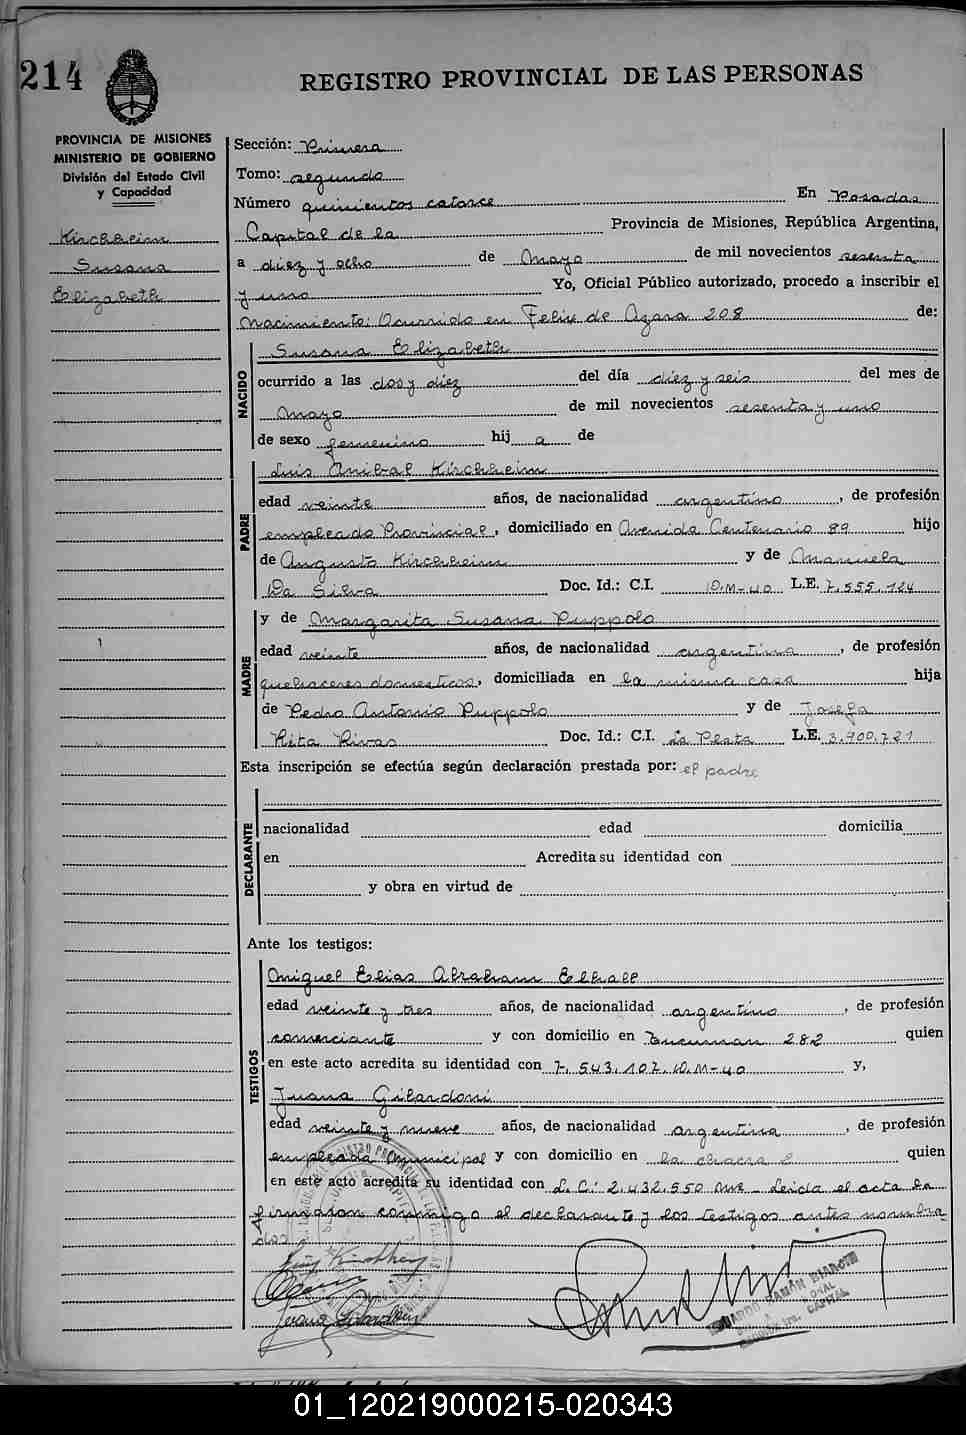 214
REGISTRO PROVINCIAL DE LAS PERSONAS
PROVINCIA DE MISIONES
MINISTERIO DE GOBIERNO
División del Estado Civil
y Capacidad
Kircheim
Susana
Elizabeth
Sección: Primera
Tomo: segundo
Número quinientos catorce En Posadas
Capital de la Provincia de Misiones, República Argentina,
a diez y ocho de Mayo de mil novecientos sesenta
y uno Yo, Oficial Público autorizado, procedo a inscribir el
Nacimiento: Ocurrido en Felix de Azara 208 de:
NACIDO
Susana Elizabeth
ocurrido a las dos y diez del día diez y seis del mes de
Mayo de mil novecientos sesenta y uno
de sexo femenino hij a de
PADRE
Luis Anibal Kircheim
edad veinte años, de nacionalidad argentino, de profesión
empleado Provincial, domiciliado en Avenida Centenario 89 hijo
de Augusto Kircheim y de Manuela
Da Silva Doc. Id.: C.I. D.M-40 L.E. 7.555.124
MADRE
y de Margarita Susana Puppolo
edad veinte años, de nacionalidad argentina, de profesión
quehaceres domesticos, domiciliada en la misma casa hija
de Pedro Antonio Puppolo y de Josefa
Rita Rivas Doc. Id.: C.I. La Plata L.E. 3.900.721
Esta inscripción se efectúa según declaración prestada por: el padre
DECLARANTE
nacionalidad edad domicilia
en Acredita su identidad con
y obra en virtud de
Ante los testigos:
TESTIGOS
Miguel Elias Abraham Elhall
edad veinte y tres años, de nacionalidad argentino, de profesión
comerciante y con domicilio en Tucuman 282 quien
en este acto acredita su identidad con 7.543.107.D.M-40 y,
Juana Gilardoni
edad veinte y nueve años, de nacionalidad argentina, de profesión
empleada Municipal y con domicilio en la chacra 2 quien
en este acto acredita su identidad con L.C: 2.432.550 Mnes - Leida el acta la
firmaron conmigo el declarante y los testigos antes nombra-
dos
EDUARDO RAMÓN BIANCHI
CAPITAL
01_120219000215-020343